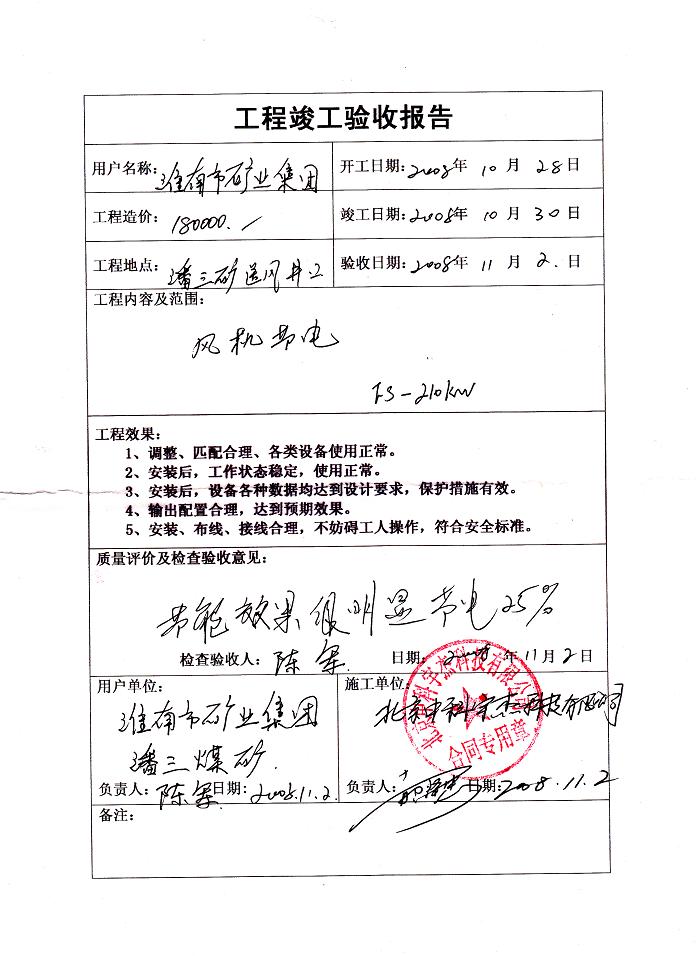 工程竣工验收报告
用户名称：淮南市矿业集团 开工日期：2008年 10 月 28 日
工程造价：180000.／ 竣工日期：2008年 10 月 30 日
工程地点：潘三矿送风井2 验收日期：2008年 11 月 2. 日
工程内容及范围：
风机节电
FS-210kW
工程效果：
1、调整、匹配合理、各类设备使用正常。
2、安装后，工作状态稳定，使用正常。
3、安装后，设备各种数据均达到设计要求，保护措施有效。
4、输出配置合理，达到预期效果。
5、安装、布线、接线合理，不妨碍工人操作，符合安全标准。
质量评价及检查验收意见：
节能效果很明显节电25%
检查验收人：陈军 日期：2008 年11月2日
用户单位： 施工单位：
淮南市矿业集团 北京中科宇杰科技有限公司
潘三煤矿.
合同专用章
负责人：陈军 日期：2008.11.2. 负责人： 日期：2008.11.2
备注：